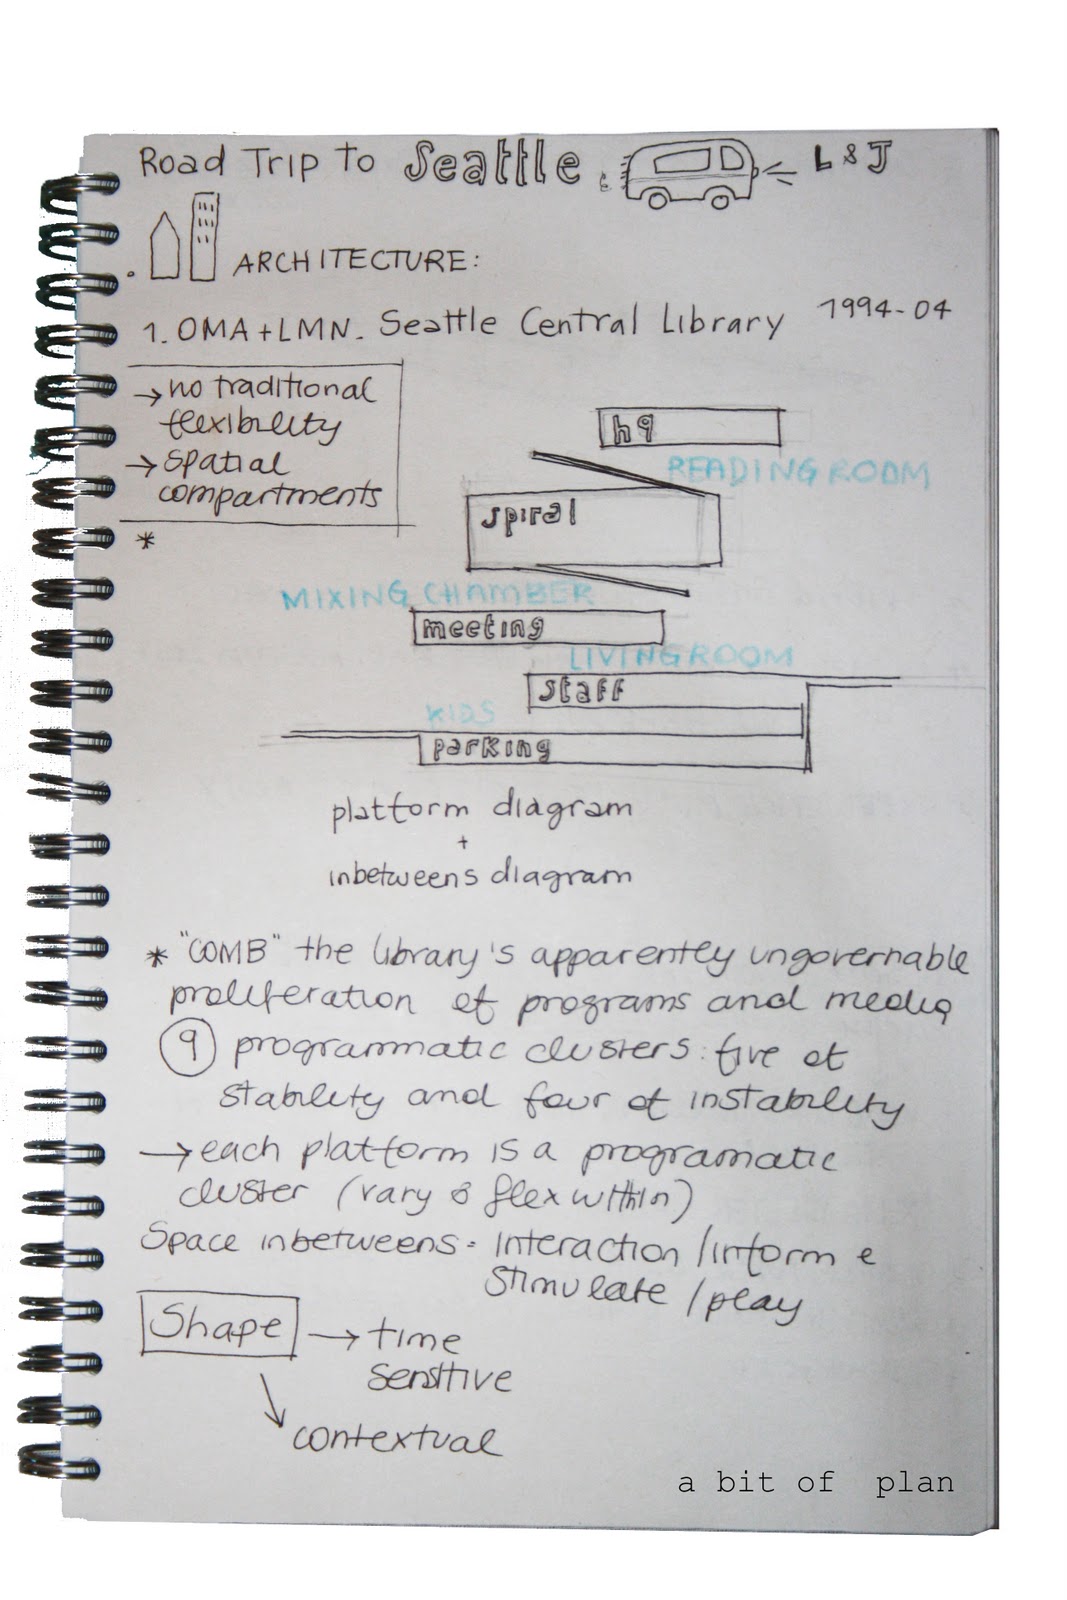 Road Trip to Seattle L & J
ARCHITECTURE:
1. OMA + LMN. Seattle Central Library 1994-04
→ no traditional
flexibility
→ spatial
compartments
*
hq
READING ROOM
spiral
MIXING CHAMBER
meeting
LIVINGROOM
staff
KIDS
parking
platform diagram
+
inbetweens diagram
* "COMB" the library's apparently ungovernable
proliferation of programs and media
9 programmatic clusters: five of
stability and four of instability
→ each platform is a programatic
cluster (vary & flex within)
Space inbetweens = interaction / inform e
stimulate / play
Shape → time
sensitive
contextual
a bit of plan